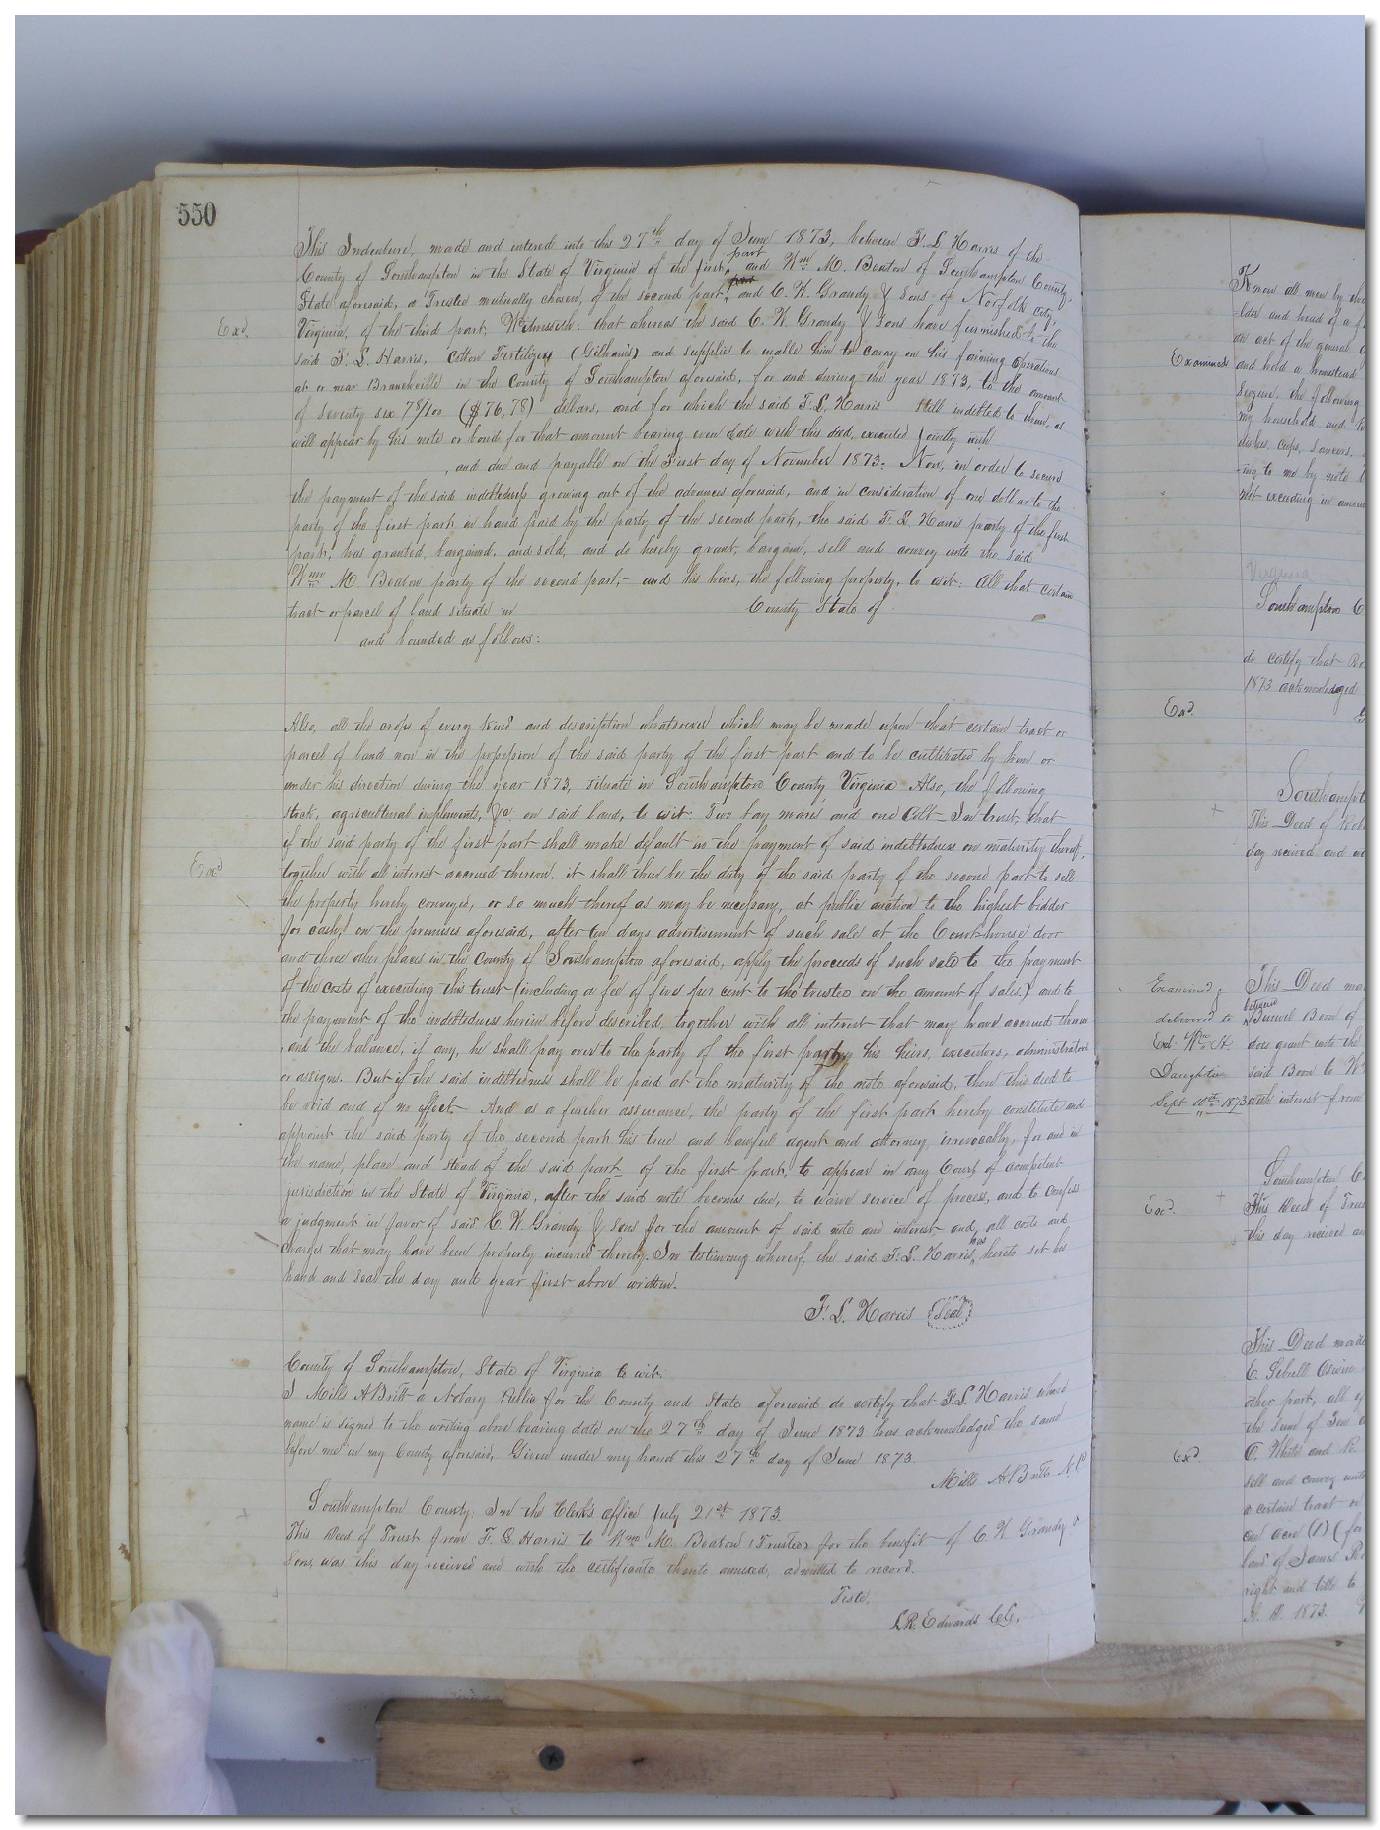 550
This Indenture, made and entered into this 27th day of June 1873, between F. L. Harris of the
County of Southampton in the State of Virginia of the first part and Wm M. Beaton of Southampton County,
State aforesaid, a Trustee mutually chosen, of the second part, and C. W. Grandy & Sons of Norfolk city,
Exd. Virginia, of the third part, Witnesseth: that whereas the said C. W. Grandy & Sons have furnished to the
said F. L. Harris, Cotton Fertilizer (Gilhams) and supplies to enable him to carry on his farming operations
at or near Branchville in the County of Southampton aforesaid, for and during the year 1873, to the amount
of seventy six 78/100 ($76,78) dollars, and for which the said F. L. Harris still indebted to them, as
will appear by his note or bond for that amount bearing even date with this deed, executed jointly with
, and due and payable on the First day of November 1873. Now, in order to secure
the payment of the said indebtedness growing out of the advances aforesaid, and in consideration of one dollar to the
party of the first part in hand paid by the party of the second part, the said F. L. Harris party of the first
part, has granted, bargained, and sold, and do hereby grant, bargain, sell and convey unto the said
Wm M. Beaton party of the second part, and his heirs, the following property, to wit: All that certain
tract or parcel of land situate in County State of
and bounded as follows:
Also, all the crops of every kind and description whatsoever which may be made upon that certain tract or
parcel of land now in the possession of the said party of the first part and to be cultivated by him or
under his direction during the year 1873, situate in Southampton County Virginia Also, the following
stock, agricultural implements, &c on said land, to wit: Two bay mares and one Colt In trust, that
if the said party of the first part shall make default in the payment of said indebtedness on maturity thereof,
Exd together with all interest accrued thereon, it shall then be the duty of the said party of the second part to sell
the property hereby conveyed, or so much thereof as may be necessary, at public auction to the highest bidder
for cash, on the premises aforesaid, after ten days advertisement of such sale at the Court-house door
and three other places in the County of Southampton aforesaid, apply the proceeds of such sale to the payment
of the costs of executing this trust (including a fee of five per cent to the trustee on the amount of sales) and to
the payment of the indebtedness herein before described, together with all interest that may have accrued thereon
, and the balance, if any, he shall pay over to the party of the first party his heirs, executors, administrators
or assigns. But if the said indebtedness shall be paid at the maturity of the note aforesaid, then this deed to
be void and of no effect. And as a further assurance, the party of the first part hereby constitute and
appoint the said party of the second part his true and lawful agent and attorney, irrevocably, for and in
the name, place and stead of the said part of the first part, to appear in any Court of competent
jurisdiction in the State of Virginia, after the said note becomes due, to waive service of process, and to confess
a judgment in favor of said C. W. Grandy & Sons for the amount of said note and interest and, all costs and
charges that may have been properly incurred thereby. In testimony whereof, the said F. L. Harris has hereto set his
hand and seal the day and year first above written.
F. L. Harris (Seal)
County of Southampton, State of Virginia to wit:
I Mills A Britt a Notary Public for the County and State aforesaid do certify that F L Harris whose
name is signed to the writing above bearing date on the 27th day of June 1873 has acknowledged the same
before me in my County aforesaid, Given under my hand this 27th day of June 1873.
Mills A Britt N. P
Southampton County, In the Clerk's office July 21st 1873.
This Deed of Trust from F. L. Harris to Wm M. Beaton (Trustee) for the benefit of C. W Grandy &
Sons, was this day received and with the certificate thereto annexed, admitted to record.
Teste,
L. R. Edwards C. C.
Know all men by
law and head of a
an act of the general
Examined and held a homestead
Seguine, the following
my household and
dishes, cups, saucers,
ing to me by note
not exceeding in
Virginia
Southampton C
do certify that
1873 acknowledged
Exd.
Southampt
This Deed of
day received and
Examined & This Deed ma
delivered to between Bunnel Boon of
Exd. Wm H. does grant unto the
Daughtrey said Boon to W
Sept 10th 1873 with interest from
Southampton C
Exd. This Deed of Trus
this day received an
This Deed made
other part, all of
the sum of
Exd O. White and R
sell and convey unto
a certain tract or
one acre (1) (for
land of James R
right and title to
A. D. 1873.